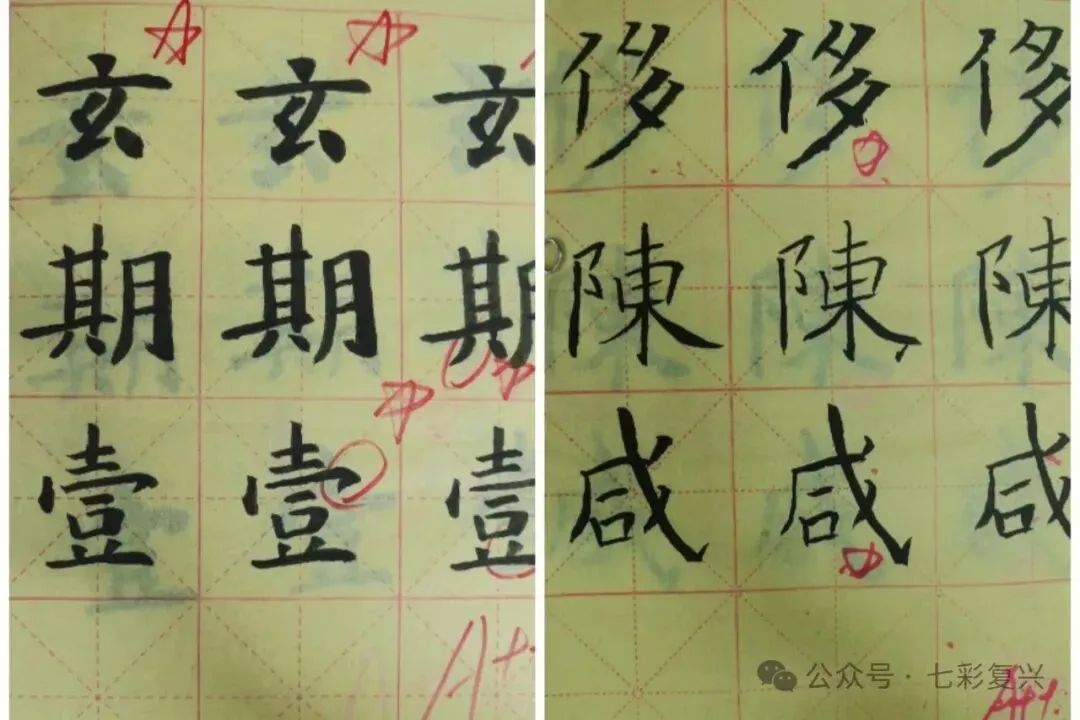 玄 玄 玄
期 期 期
壹 壹 壹
A+
侈 侈 侈
陳 陳 陳
咸 咸 咸
A+
公众号 · 七彩复兴